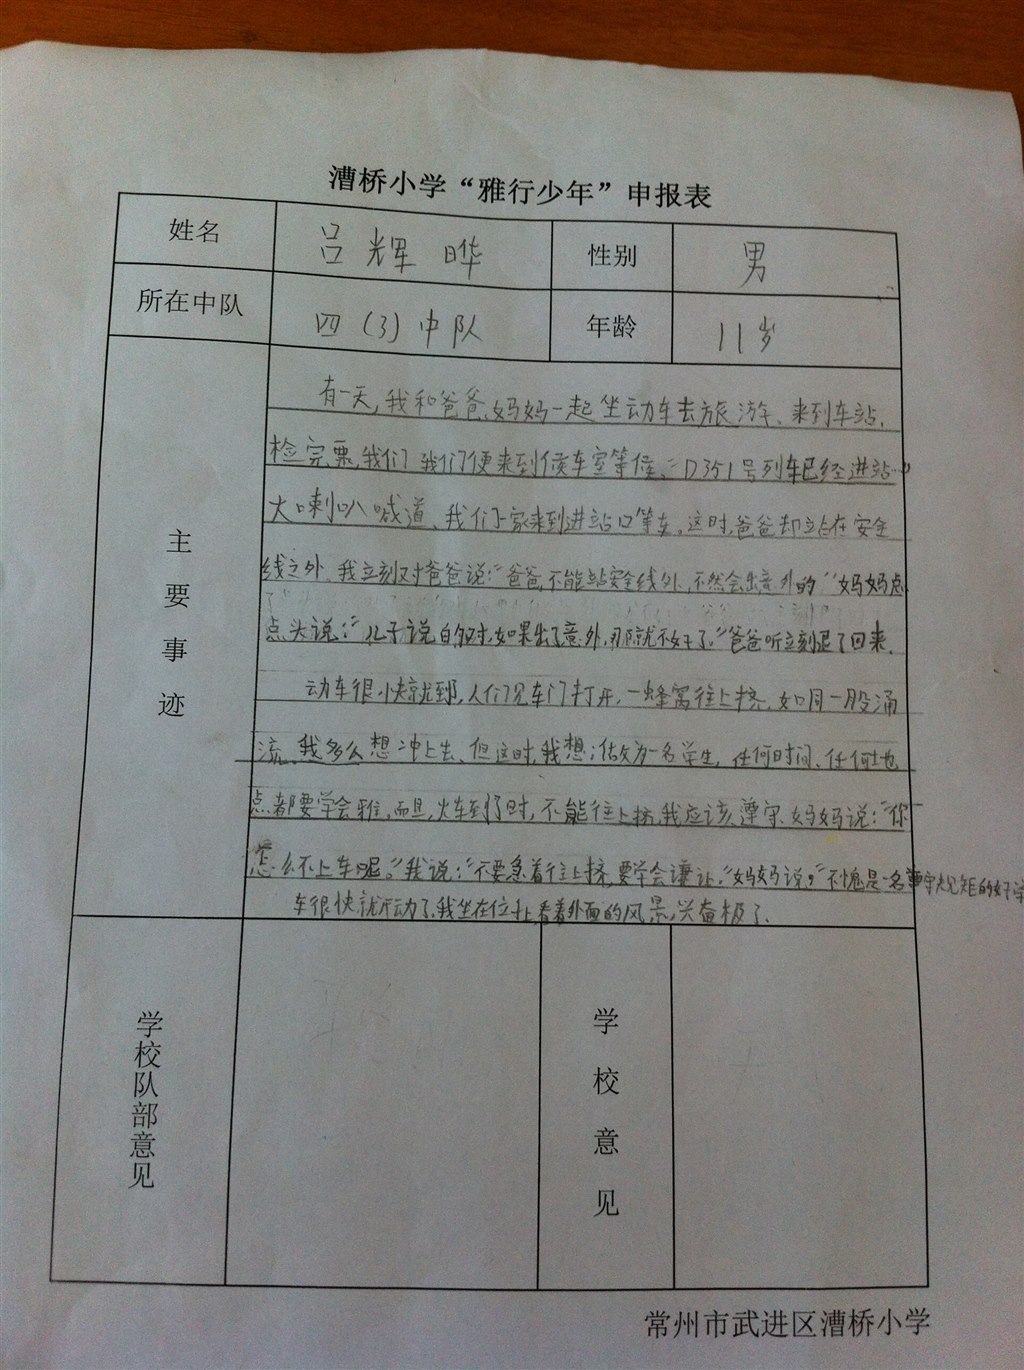 漕桥小学“雅行少年”申报表
姓名 吕辉晔 性别 男
所在中队 四(3)中队 年龄 11岁
主要事迹
有一天,我和爸爸、妈妈一起坐动车去旅游、来到车站,
检完票,我们我们便来到候车室等候。“D351号列车已经进站”
大喇叭喊道、我们一家来到进站口等车。这时,爸爸却站在安全
线之外、我立刻对爸爸说:“爸爸,不能站安全线外,不然会出意外的”妈妈点
点头说:“儿子说的对,如果出了意外,那就不好了。”爸爸听立刻退了回来.
动车很快就到,人们见车门打开,一蜂窝往上挤,如同一股涌
流、我多么想冲上去、但这时,我想:做为一名学生,任何时间、任何地
点都要学会雅,而且,火车到了时,不能往上挤,我应该遵守、妈妈说:“你
怎么不上车呢。”我说:“不要急着往上挤,要学会谦让。”妈妈说,“不愧是一名遵守规矩的好学
车很快就开动了,我坐在位上,看着外面的风景,兴奋极了.
学校队部意见
学校意见
常州市武进区漕桥小学